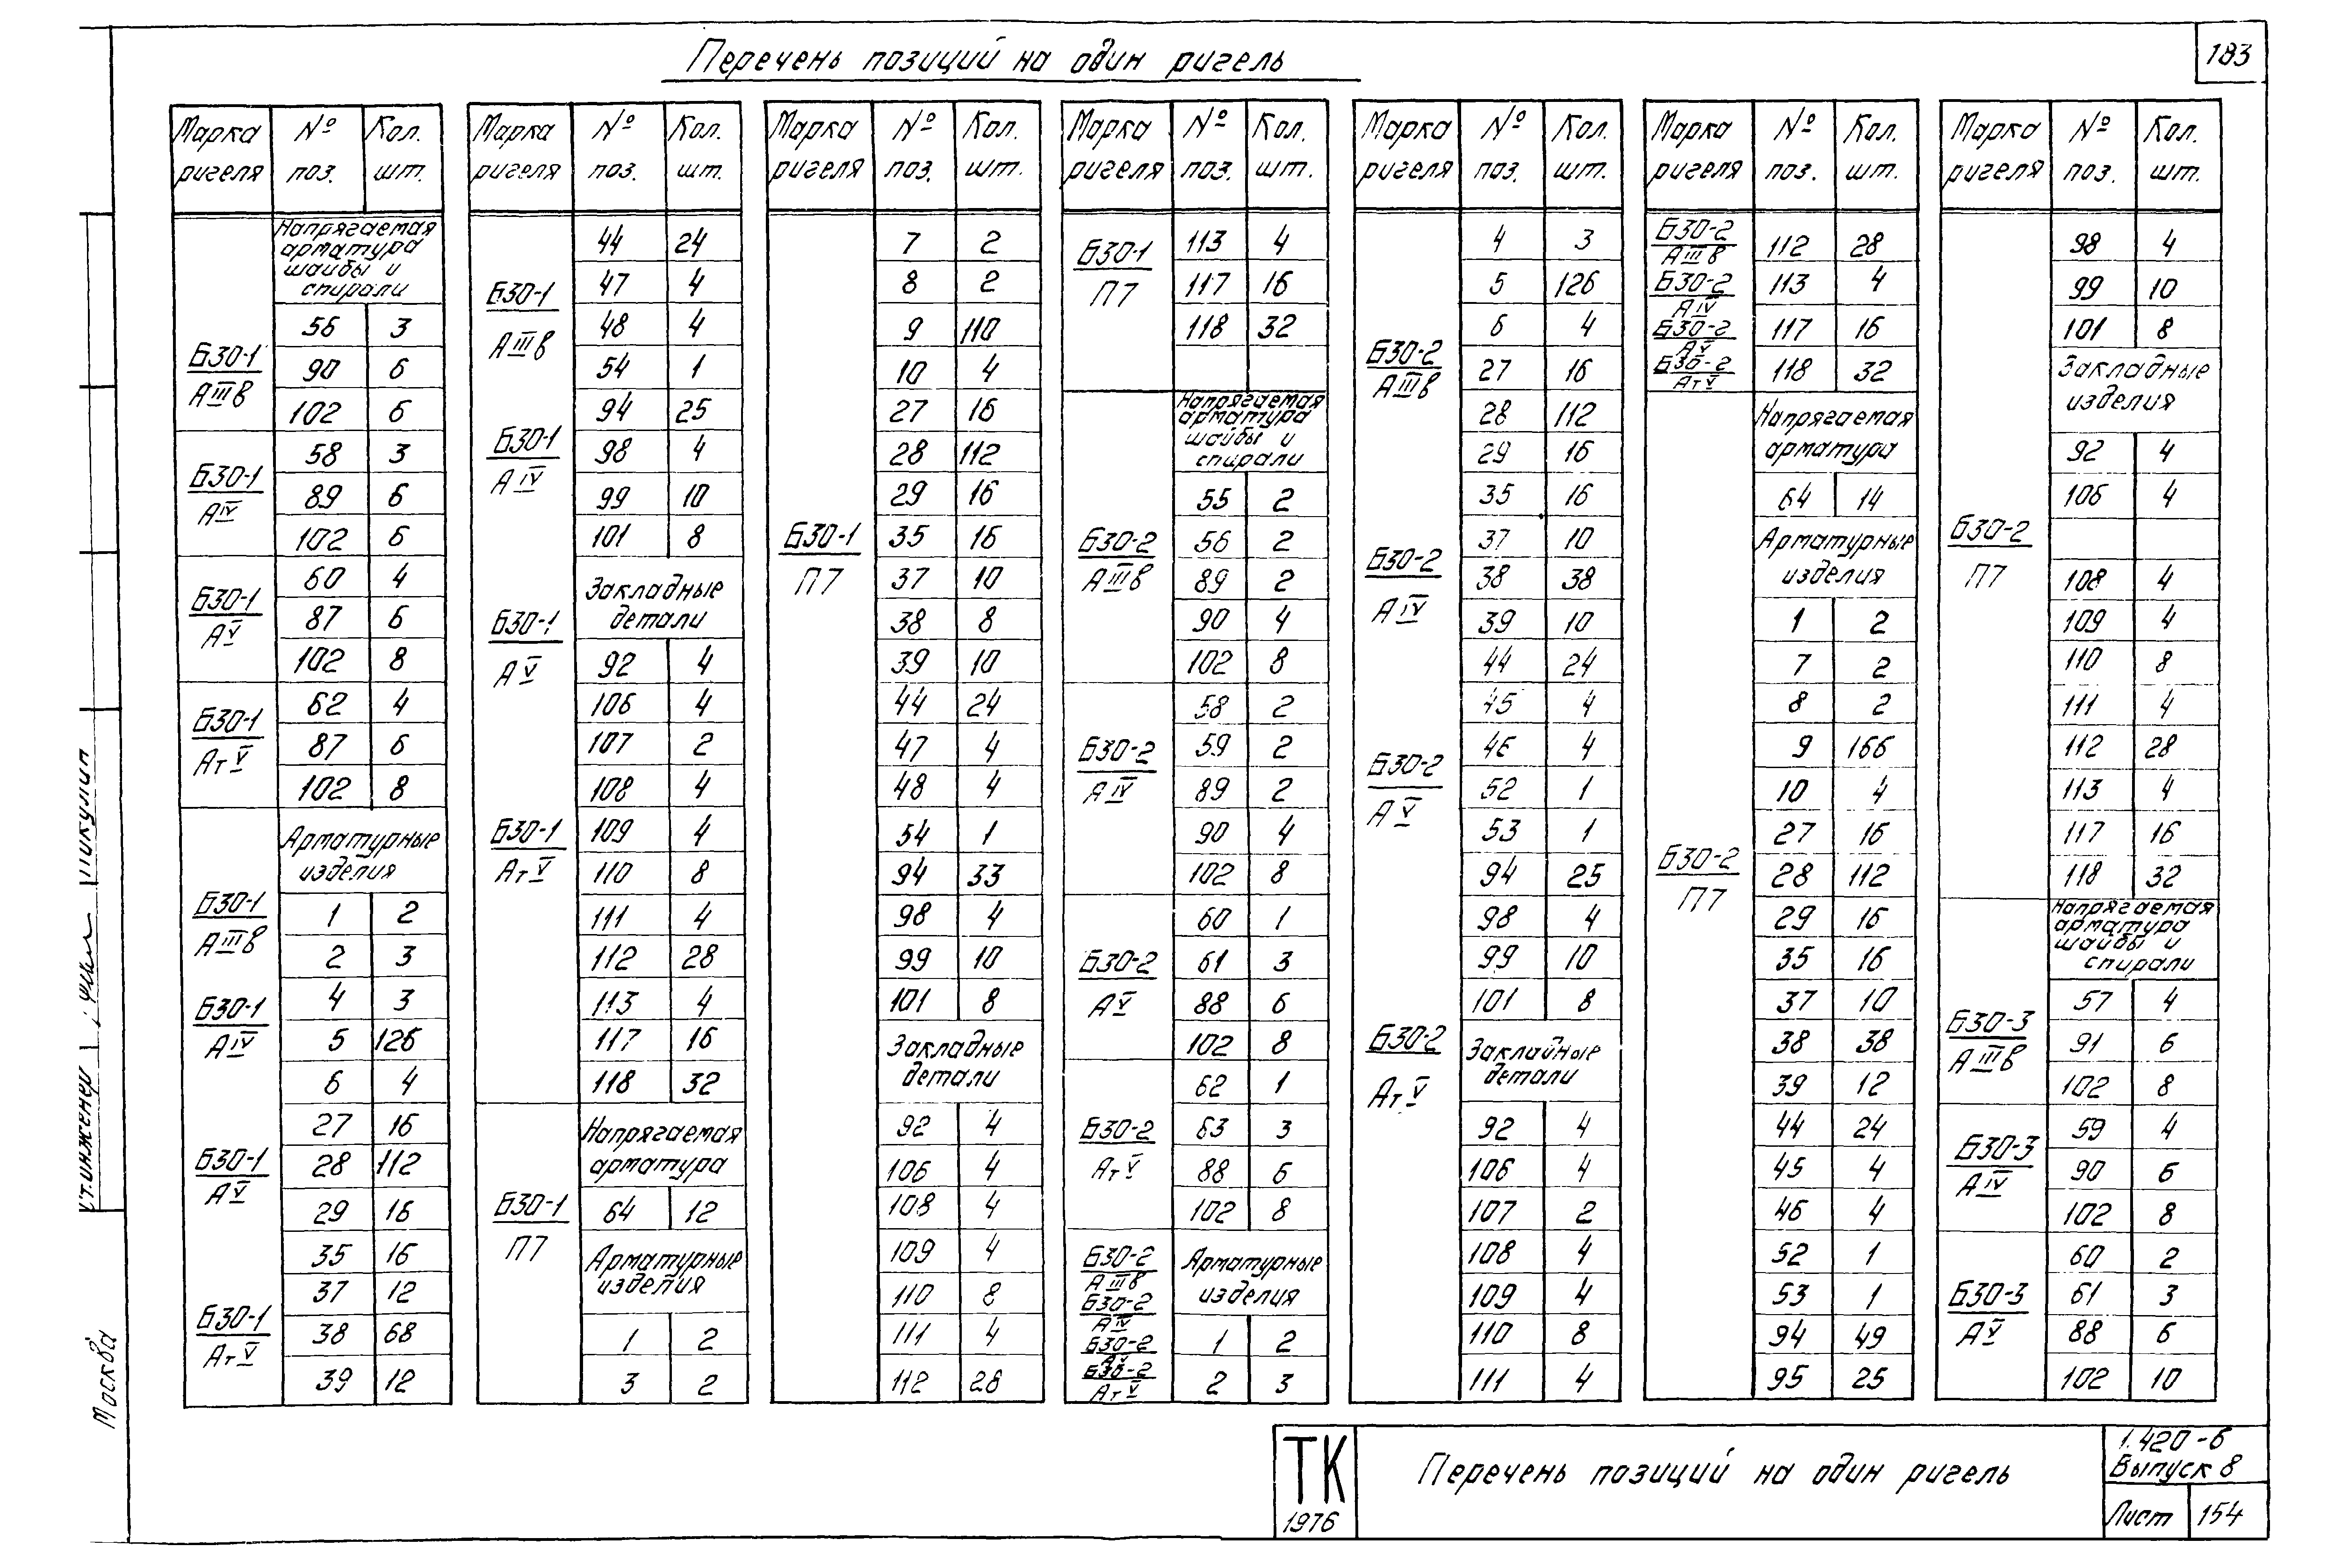 183
Перечень позиций на один ригель
Марка ригеля № поз. Кол. шт.
Напрягаемая
арматура
шайбы и
спирали
Б30-1
АIIIв
56 3
90 6
102 6
Б30-1
АIV
58 3
89 6
102 6
Б30-1
АV
60 4
87 6
102 8
Б30-1
АтV
62 4
87 6
102 8
Арматурные
изделия
Б30-1
АIIIв
Б30-1
АIV
Б30-1
АV
Б30-1
АтV
1 2
2 3
4 3
5 126
6 4
27 16
28 112
29 16
35 16
37 12
38 68
39 12
Марка ригеля № поз. Кол. шт.
Б30-1
АIIIв
Б30-1
АIV
Б30-1
АV
Б30-1
АтV
44 24
47 4
48 4
54 1
94 25
98 4
99 10
101 8
Закладные
детали
92 4
106 4
107 2
108 4
109 4
110 8
111 4
112 28
113 4
117 16
118 32
Б30-1
П7
Напрягаемая
арматура
64 12
Арматурные
изделия
1 2
3 2
Марка ригеля № поз. Кол. шт.
Б30-1
П7
7 2
8 2
9 110
10 4
27 16
28 112
29 16
35 16
37 10
38 8
39 10
44 24
47 4
48 4
54 1
94 33
98 4
99 10
101 8
Закладные
детали
92 4
106 4
108 4
109 4
110 8
111 4
112 28
Марка ригеля № поз. Кол. шт.
Б30-1
П7
113 4
117 16
118 32
Напрягаемая
арматура
шайбы и
спирали
Б30-2
АIIIв
55 2
56 2
89 2
90 4
102 8
Б30-2
АIV
58 2
59 2
89 2
90 4
102 8
Б30-2
АV
60 1
61 3
88 6
102 8
Б30-2
АтV
62 1
63 3
88 6
102 8
Б30-2
АIIIв
Б30-2
АIV
Б30-2
АV
Б30-2
АтV
Арматурные
изделия
1 2
2 3
Марка ригеля № поз. Кол. шт.
Б30-2
АIIIв
Б30-2
АIV
Б30-2
АV
Б30-2
АтV
4 3
5 126
6 4
27 16
28 112
29 16
35 16
37 10
38 38
39 10
44 24
45 4
46 4
52 1
53 1
94 25
98 4
99 10
101 8
Закладные
детали
92 4
106 4
107 2
108 4
109 4
110 8
111 4
Марка ригеля № поз. Кол. шт.
Б30-2
АIIIв
Б30-2
АIV
Б30-2
АV
Б30-2
АтV
112 28
113 4
117 16
118 32
Б30-2
П7
Напрягаемая
арматура
64 14
Арматурные
изделия
1 2
7 2
8 2
9 166
10 4
27 16
28 112
29 16
35 16
37 10
38 38
39 12
44 24
45 4
46 4
52 1
53 1
94 49
95 25
Марка ригеля № поз. Кол. шт.
Б30-2
П7
98 4
99 10
101 8
Закладные
изделия
92 4
106 4
108 4
109 4
110 8
111 4
112 28
113 4
117 16
118 32
Напрягаемая
арматура
шайбы и
спирали
Б30-3
АIIIв
57 4
91 6
102 8
Б30-3
АIV
59 4
90 6
102 8
Б30-3
АV
60 2
61 3
88 6
102 10
ст.инженер
Шикулин
Москва
ТК
1976
Перечень позиций на один ригель
1.420-6
Выпуск 8
Лист 154